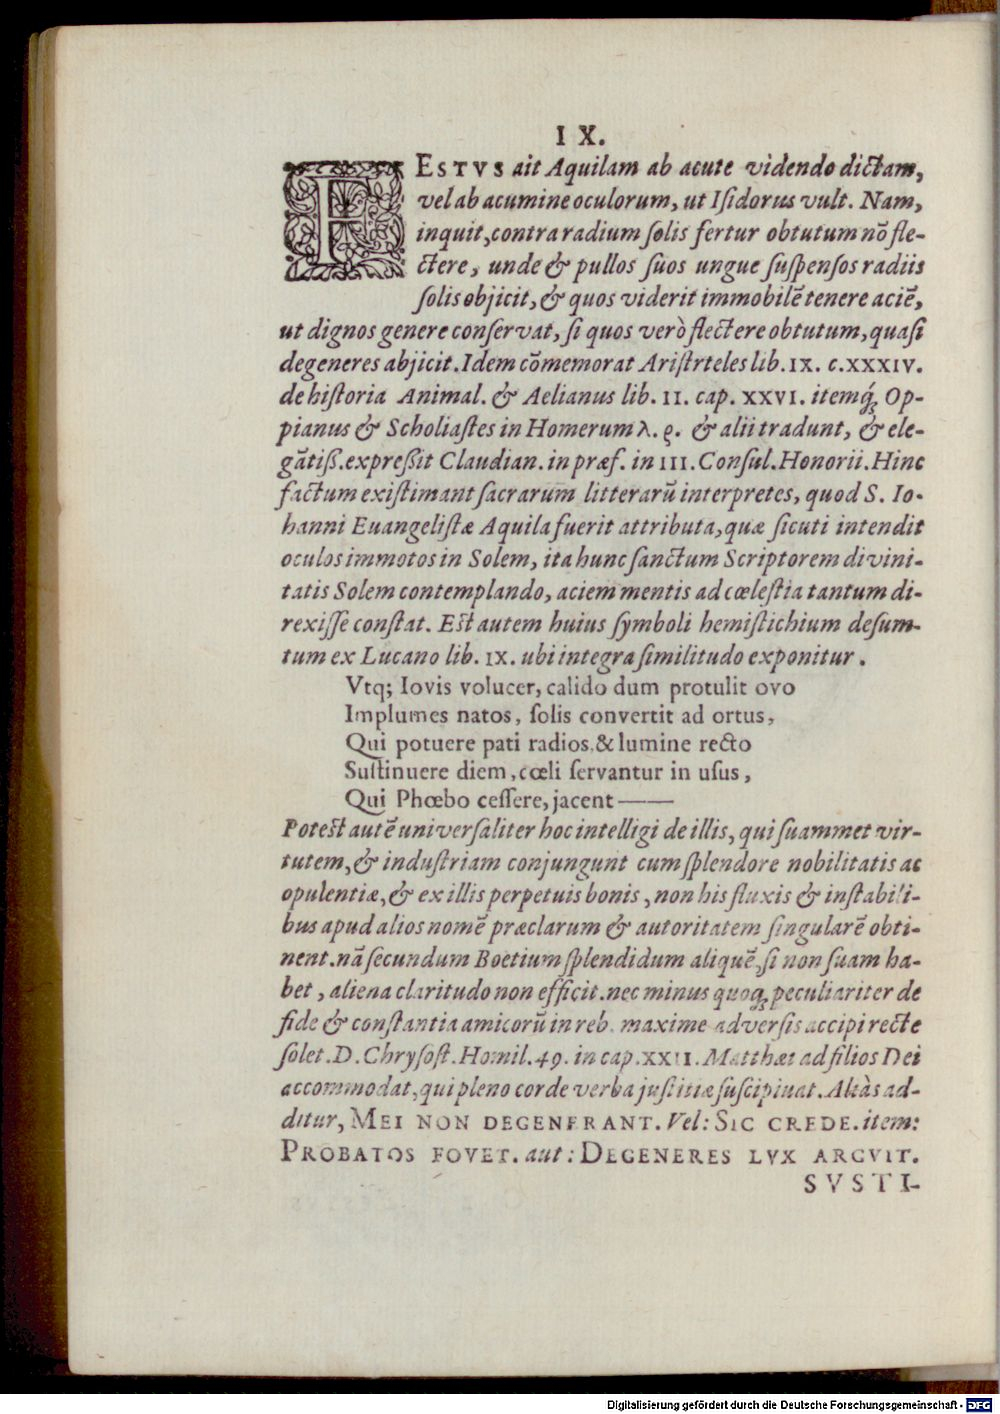 IX.
FESTVS ait Aquilam ab acute videndo dictam,
vel ab acumine oculorum, ut Isidorus vult. Nam,
inquit, contra radium solis fertur obtutum nō fle-
ctere, unde & pullos suos ungue suspensos radiis
solis objicit, & quos viderit immobilē tenere aciē,
ut dignos genere conservat, si quos verò flectere obtutum, quasi
degeneres abjicit. Idem cōmemorat Aristrteles lib. IX. c. XXXIV.
de historia Animal. & Aelianus lib. II. cap. XXVI. itemq́; Op-
pianus & Scholiastes in Homerum λ. ϱ. & alii tradunt, & ele-
gātiß. expreßit Claudian. in præf. in III. Consul. Honorii. Hinc
factum existimant sacrarum litterarū interpretes, quod S. Io-
hanni Euangelistæ Aquila fuerit attributa, quæ sicuti intendit
oculos immotos in Solem, ita hunc sanctum Scriptorem divini-
tatis Solem contemplando, aciem mentis ad cœlestia tantum di-
rexisse constat. Est autem huius symboli hemistichium desum-
tum ex Lucano lib. IX. ubi integra similitudo exponitur.
Vtq; Iovis volucer, calido dum protulit ovo
Implumes natos, solis convertit ad ortus,
Qui potuere pati radios, & lumine recto
Sustinuere diem, cœli servantur in usus,
Qui Phœbo cessere, jacent——
Potest autē universaliter hoc intelligi de illis, qui suammet vir-
tutem, & industriam conjungunt cum splendore nobilitatis ac
opulentiæ, & ex illis perpetuis bonis, non his fluxis & instabili-
bus apud alios nomē præclarum & autoritatem singularē obti-
nent. nā secundum Boetium splendidum aliquē, si non suam ha-
bet, aliena claritudo non efficit. nec minus quoq; peculiariter de
fide & constantia amicorū in reb. maxime adversis accipi recte
solet. D. Chrysost. Homil. 49. in cap. XXII. Matthæi ad filios Dei
accommodat, qui pleno corde verba justitiæ suscipiunt. Aliàs ad-
ditur, MEI NON DEGENERANT. Vel: SIC CREDE. item:
PROBATOS FOVET. aut: DEGENERES LVX ARGVIT.
SVSTI-
Digitalisierung gefördert durch die Deutsche Forschungsgemeinschaft - DFG